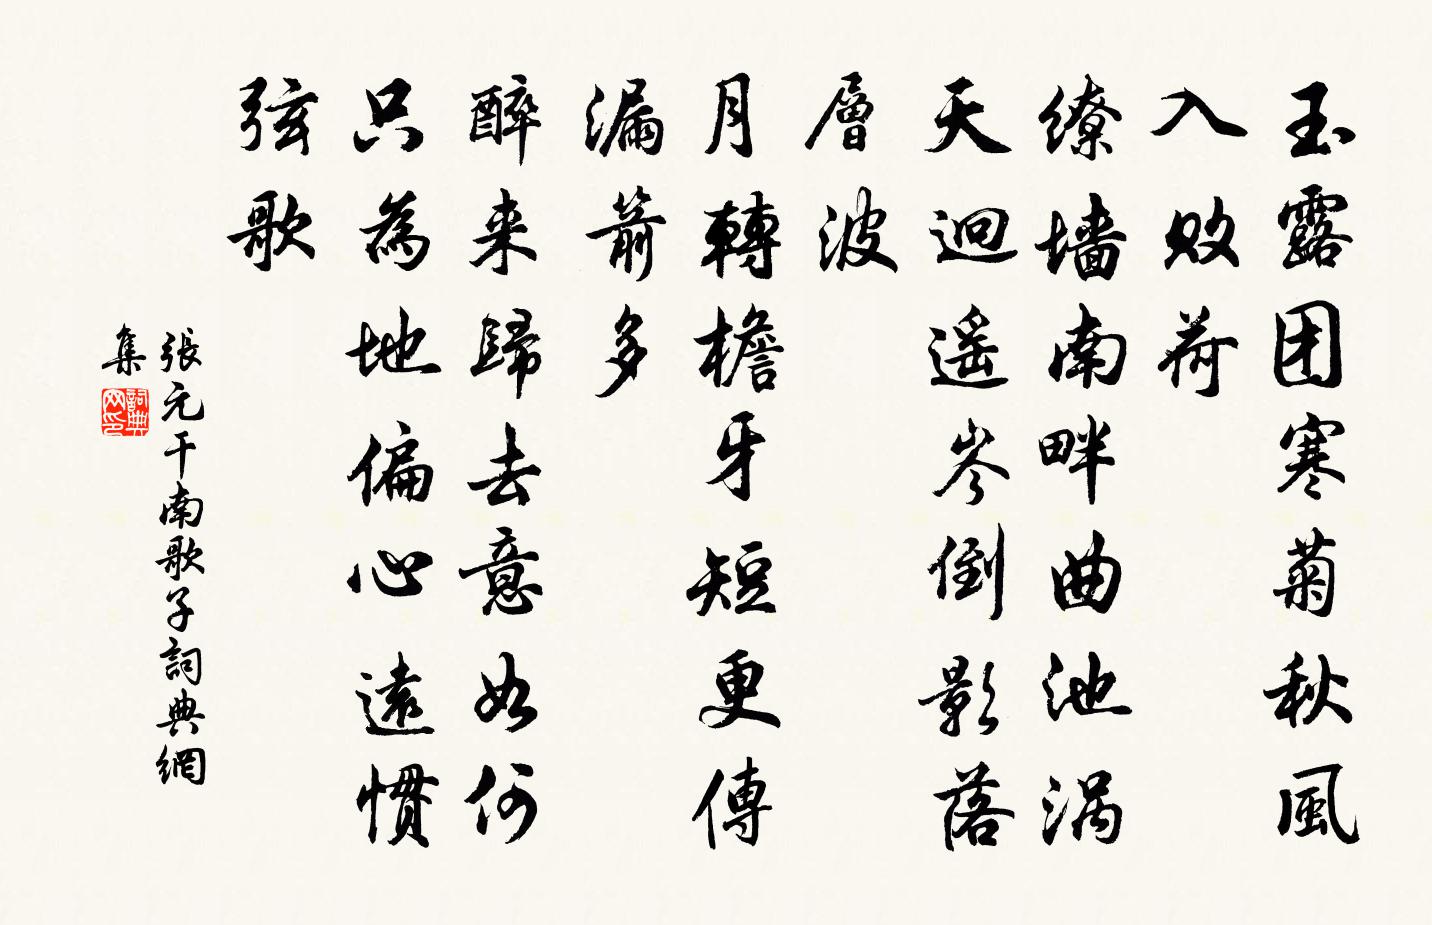 玉露团寒菊秋風
入败荷
缭墙南畔曲池涡
天迥遥岑倒影落
層波
月轉檐牙短更傳
漏箭多
醉来歸去意如何
只為地偏心遠慣
弦歌
張元干南歌子詞典網
集
詞典网印